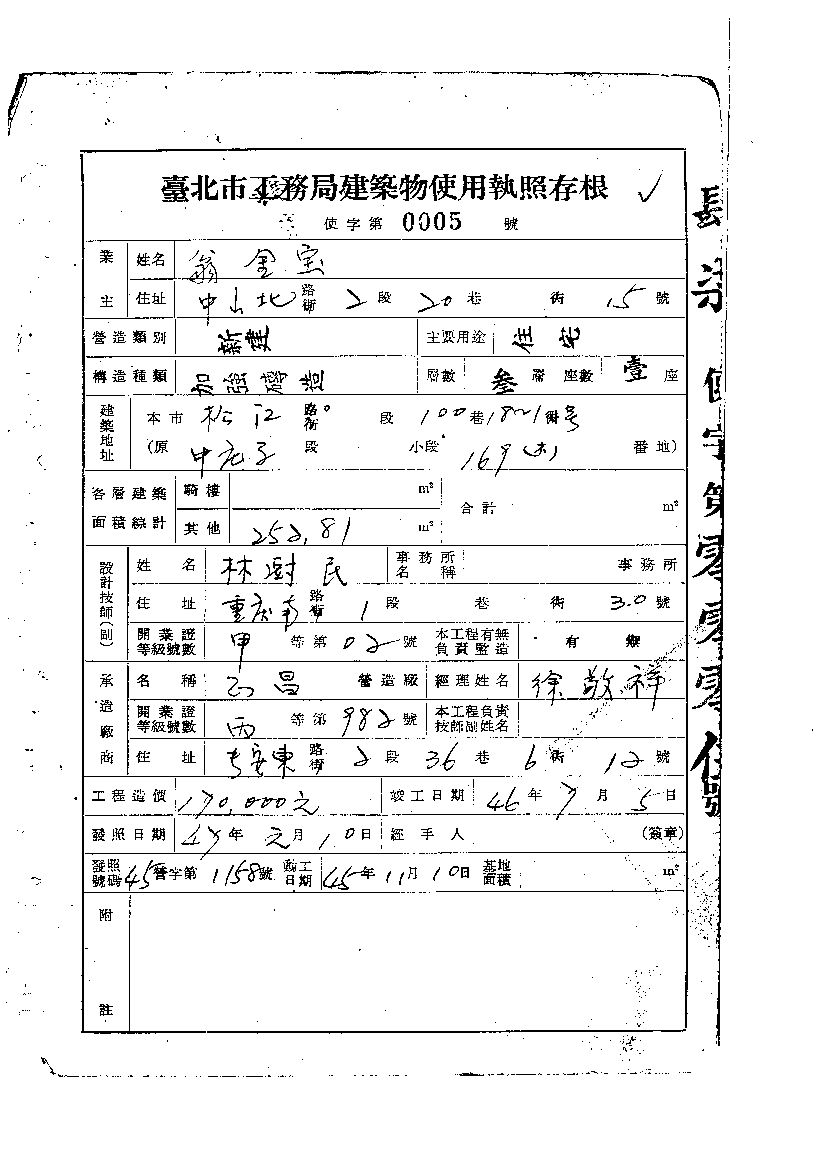 臺北市工務局建築物使用執照存根
使字第 0005 號
業主 姓名 翁金宝
住址 中山北路街 2段 20巷 衖 15號
營造類別 新建 主要用途 住宅
構造種類 加強磚造 層數 叁層 座數 壹座
建築地址 本市 松江路街 段 100巷18~1衖号
(原 中庄子 段 小段 169(木) 番地)
各層建築面積綜計 騎樓 m² 合計 m²
其他 252.81 m²
設計技師(副) 姓名 林澍民 事務所名稱 事務所
住址 重庆南路街 1段 巷 衖 30號
開業證等級號數 甲等第02號 本工程有無負責監造 有
承造廠商 名稱 昌營造廠 經理姓名 徐敬祥
開業證等級號數 丙等第982號 本工程負責技師副姓名
住址 長安東路街 2段 36巷 6衖 12號
工程造價 170,000元 竣工日期 46年7月5日
發照日期 47年元月10日 經手人 (簽章)
發照號碼 45營字第1158號 動工日期 45年11月10日 基地面積 m²
附註
肆柒使字第零零零伍號